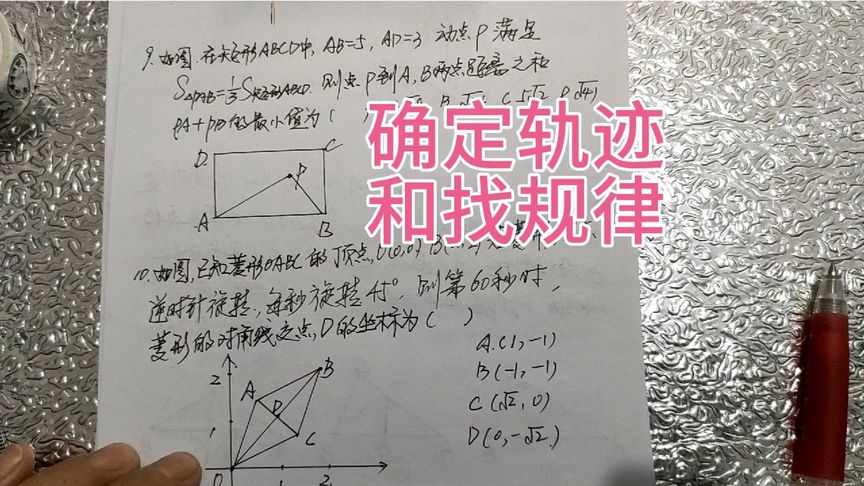 9. 如图, 在矩形ABCD中, AB=5, AD=3 动点P满足
S△PAB=1/3 S矩形ABCD. 则点P到A,B两点距离之和
PA+PB的最小值为( C 5√2 D √41
确定轨迹
和找规律
D C
P
A B
10. 如图, 已知菱形OABC的顶点, O(0,0) B
逆时针旋转, 每秒旋转45°, 则第60秒时,
菱形的对角线交点,D的坐标为( )
A.(1,-1)
B(-1,-1)
C(√2,0)
D(0,-√2)
2 B
A
D
1 C
O 1 2